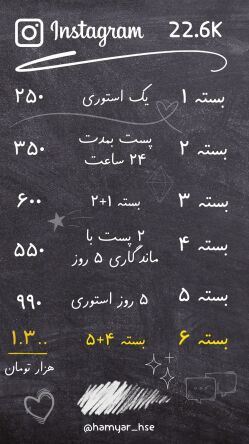 Instagram 22.6K
بسته ۱ یک استوری ۲۵۰
بسته ۲ پست بمدت ۲۴ ساعت ۳۵۰
بسته ۳ بسته ۱+۲ ۶۰۰
بسته ۴ ۲ پست با ماندگاری ۵ روز ۵۵۰
بسته ۵ ۵ روز استوری ۹۹۰
بسته ۶ بسته ۴+۵ ۱.۳۰۰
هزار تومان
@hamyar_hse